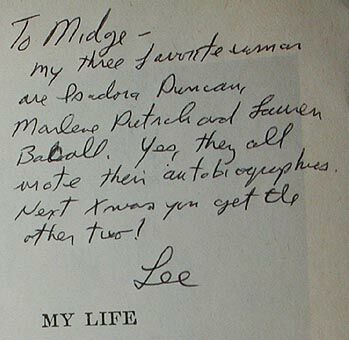 To Midge –
my three favorite woman
are Isadora Duncan,
Marlene Dietrich and Lauren
Bacall. Yes, they all
wrote their autobiographies.
Next Xmas you get the
other two!
Lee
MY LIFE